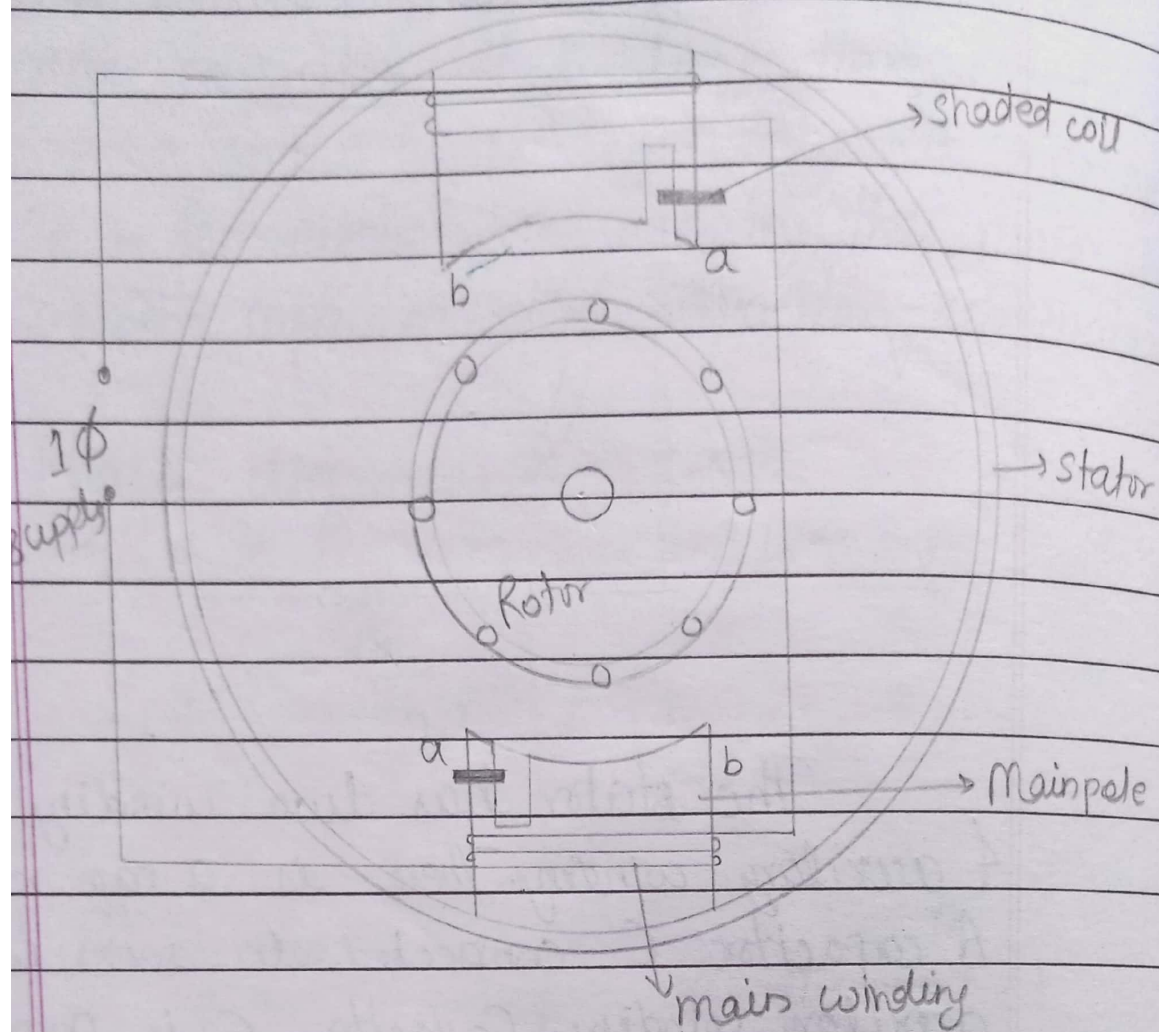 shaded coil
a
b
1Φ
supply
→ Stator
Rotor
a
b
→ Mainpole
main winding